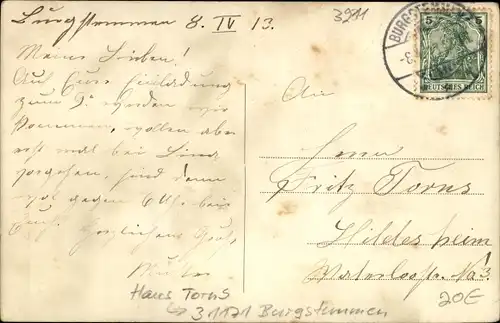 Burgstemmen 8. IV 13.
3911
BURGSTEMMEN
5 5
DEUTSCHES REICH
Meine Lieben!
Auf Eure Einladung
zum 9. werden wir
kommen, wollen aber
erst mal bei Lina
vorgehen, sind dann
gegen 6 Uhr bei
Euch. Herzlichen Gruß,
An
Herrn
Fritz Torns
Hildesheim
Waterloostr. No 3
Hans Torns
→ 31171 Burgstemmen
20E